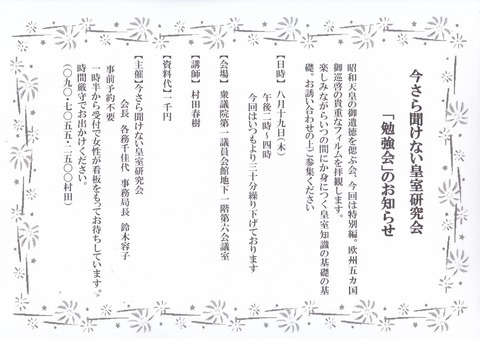 今さら聞けない皇室研究会
「勉強会」のお知らせ
昭和天皇の御遺徳を偲ぶ会、今回は特別編。欧州五カ国
御巡啓の貴重なフィルムを拝観します。
楽しみながらいつの間にか身につく皇室知識の基礎の基
礎。お誘い合わせの上ご参集ください
【日時】 八月十九日(木)
午後二時~四時
今回はいつもより三十分繰り下げております
【会場】 衆議院第一議員会館地下一階第六会議室
【講師】 村田春樹
【資料代】一千円
【主催】今さら聞けない皇室研究会
会長 各務千佳代 事務局長 鈴木容子
事前予約不要
一時半から受付で女性が看板をもってお待ちしています。
時間厳守でお出かけください。
(〇九〇・七〇五五・二五〇〇村田)